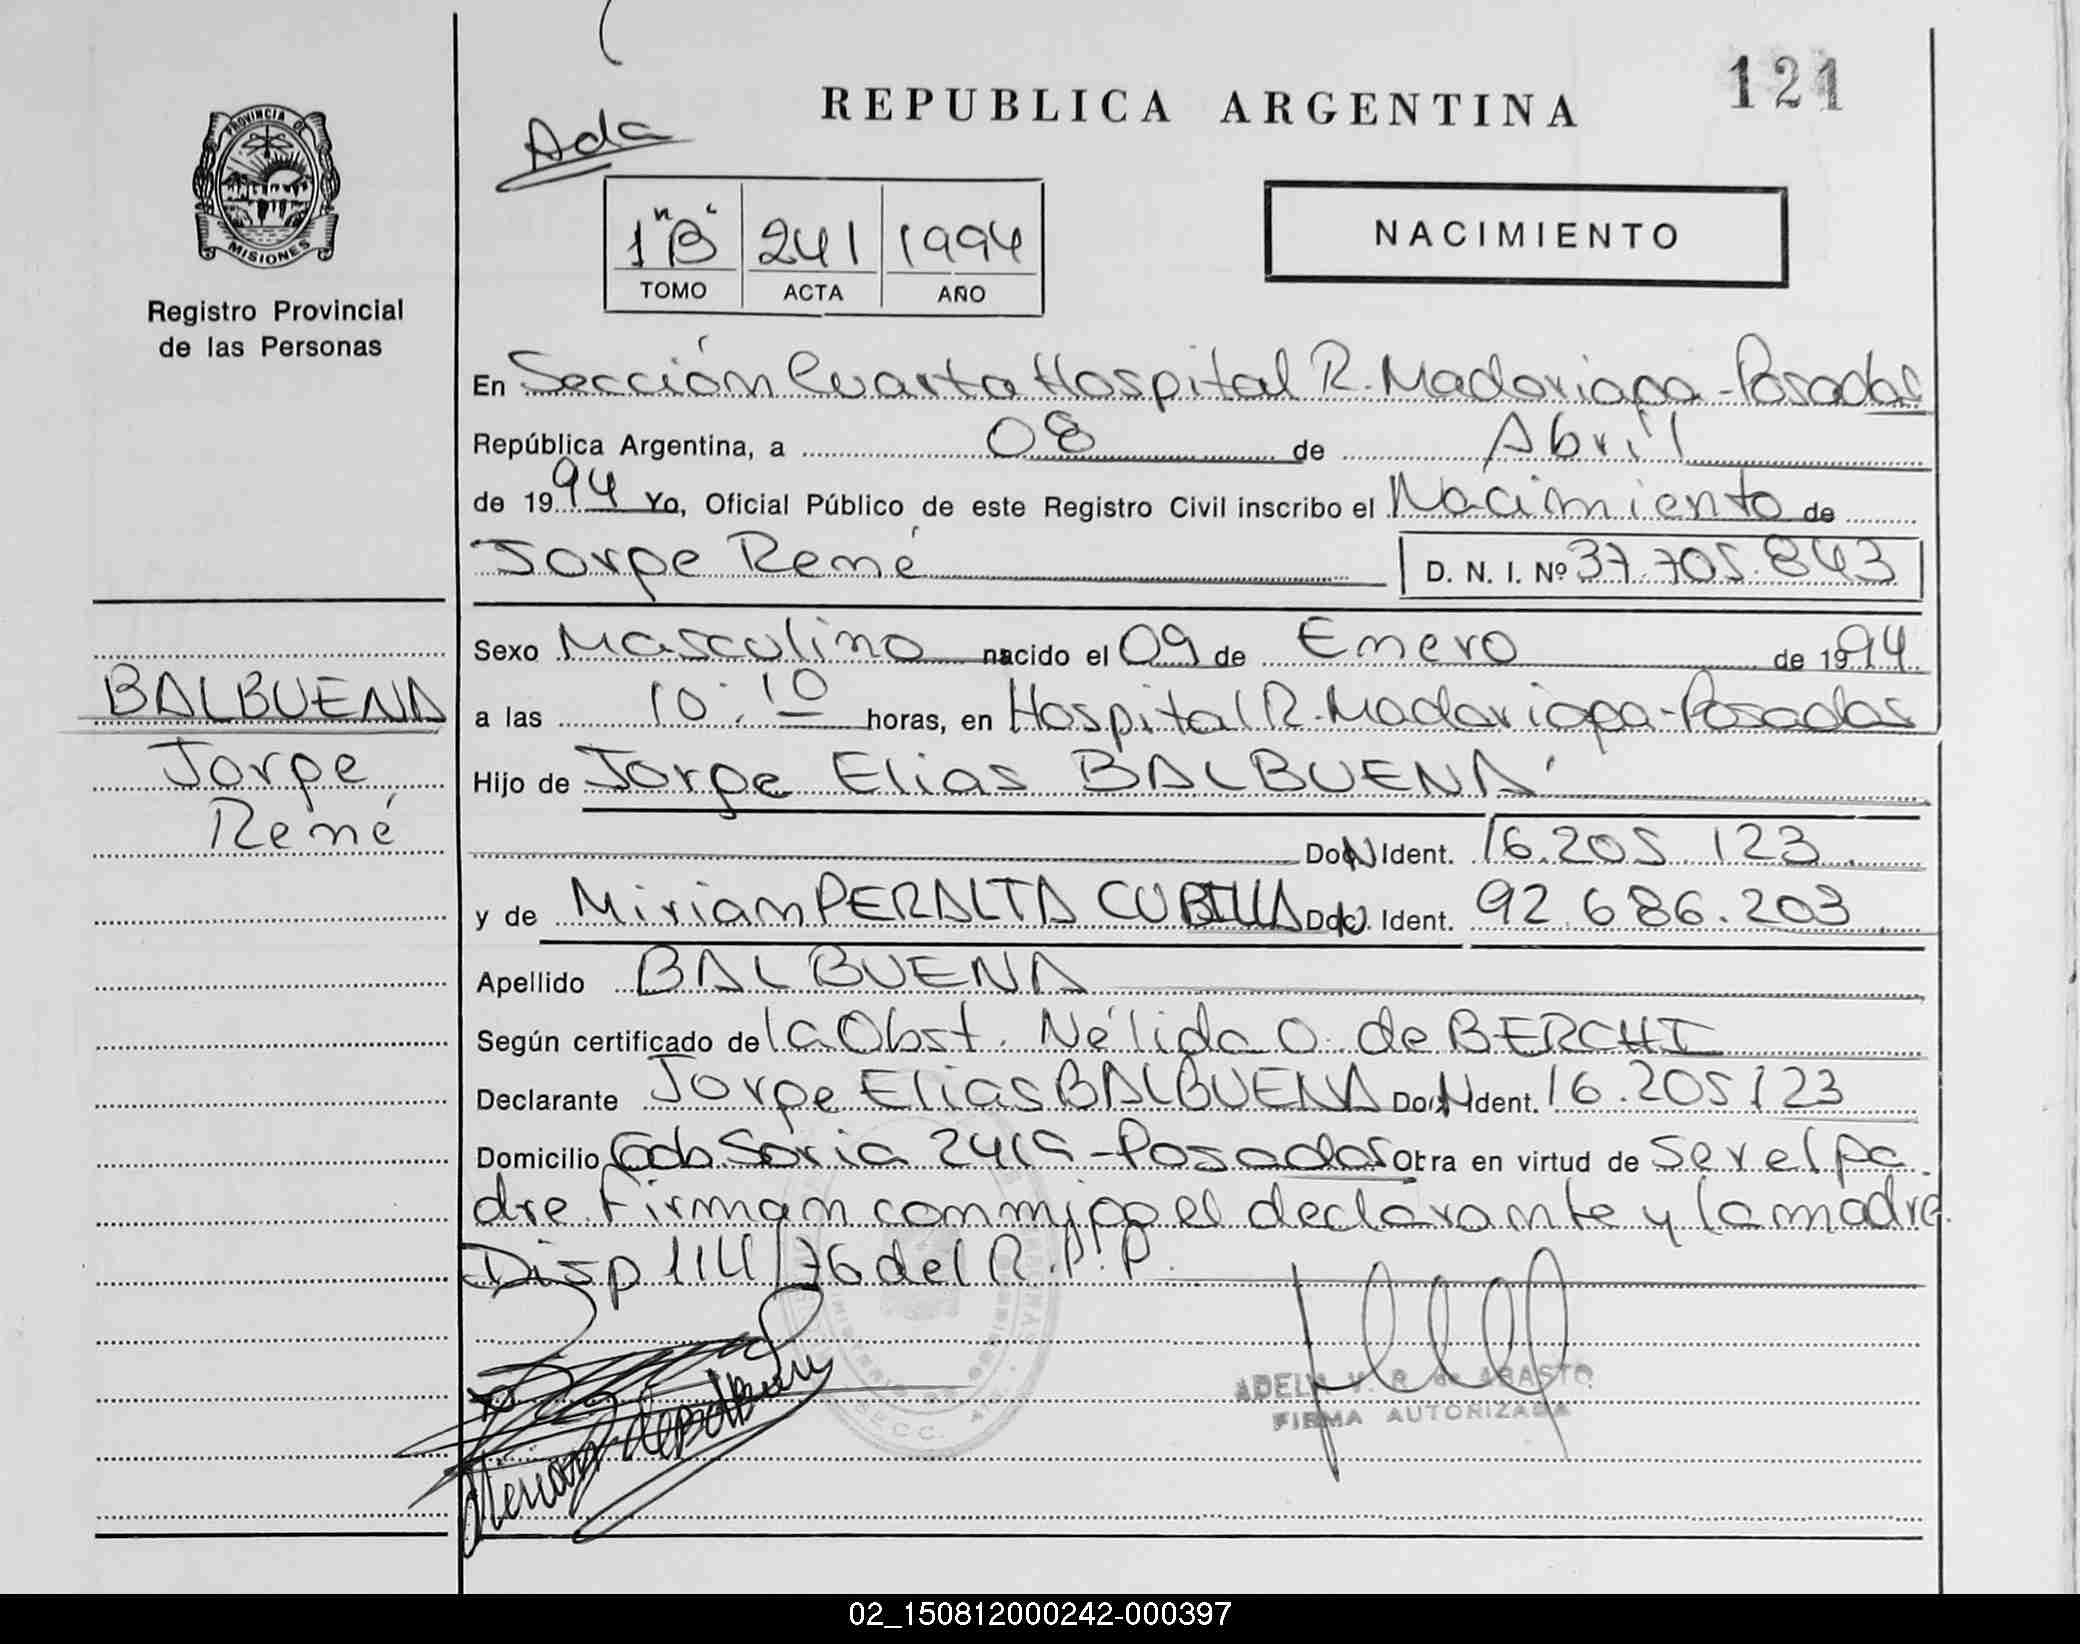 121
REPUBLICA ARGENTINA
Ada
PROVINCIA DE
MISIONES
Registro Provincial
de las Personas
1 "B" 241 1994
TOMO ACTA AÑO
NACIMIENTO
En Sección Cuarta Hospital R. Madariaga - Posadas
República Argentina, a 08 de Abril
de 1994 Yo, Oficial Público de este Registro Civil inscribo el Nacimiento de
Jorge René D. N. I. Nº 37.705.843
Sexo Masculino nacido el 09 de Enero de 1994
a las 10:10 horas, en Hospital R. Madariaga - Posadas
BALBUENA
Jorge
René
Hijo de Jorge Elias BALBUENA
Ident. 16.205.123
y de Miriam PERALTA CUBILLA Ident. 92.686.203
Apellido BALBUENA
Según certificado de la Obst. Nélida O. de BERCHI
Declarante Jorge Elias BALBUENA Ident. 16.205.123
Domicilio Soria 2415 - Posadas Otra en virtud de ser el pa
dre. Firman conmigo el declarante y la madre.
Disp 114/76 del R.P.P.
ADELA V. R. de ABASTO
FIRMA AUTORIZADA
02_150812000242-000397